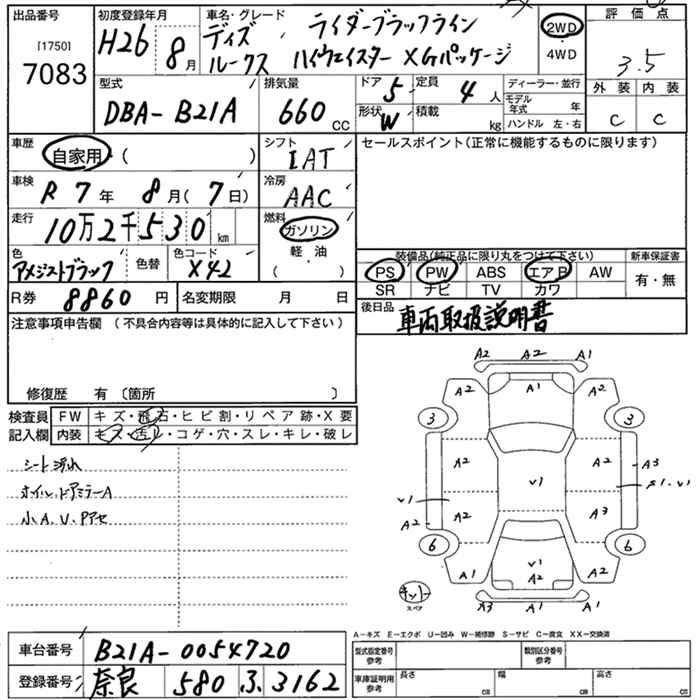 出品番号
[1750]
7083
初度登録年月
H26 8月
車名・グレード
ライダーブラックライン
ディズ
ルークス ハイウェイスター XGパッケージ
2WD
4WD
評価点
3.5
外装 内装
C C
型式
DBA-B21A
排気量
660 CC
ドア 5
定員 4人
形状 W
積載 kg
ディーラー・並行
モデル年式 年
ハンドル 左・右
車歴
自家用・( )
シフト
IAT
セールスポイント(正常に機能するものに限ります)
車検
R7年 8月(7日)
冷房
AAC
走行
10万2千530 km
燃料
ガソリン
軽・油
( )
色
アメジストブラック
色替
色コード
X42
装備品(純正品に限り丸をつけて下さい)
新車保証書
PS PW ABS エアB AW
SR ナビ TV カワ
有・無
R券 8860円
名変期限 月 日
後日品 車両取扱説明書
注意事項申告欄 (不具合内容等は具体的に記入して下さい)
修復歴 有 〔箇所 〕
検査員
記入欄
FW キズ・飛石・ヒビ割・リペア跡・X要
内装 キズ・汚レ・コゲ・穴・スレ・キレ・破レ
シート汚れ
ホイル、ドアミラーA
小A、U、Pアセ
A2 A2 A1
A2 A1 A2
3 3
A2 A2 A3
V1
V1 A1・V1
A2 A2 A3
6 6
A1 V1 A2 A2
キット
スペア
A3 A1 A1
A-キズ E-エクボ U-凹み W-補修跡 S-サビ C-腐食 XX-交換済
車台番号 B21A-0054720
登録番号 奈良 580 ふ 3162
型式指定番号
参考
類別区分番号
参考
車庫証明用
参考
長さ cm
幅 cm
高さ cm